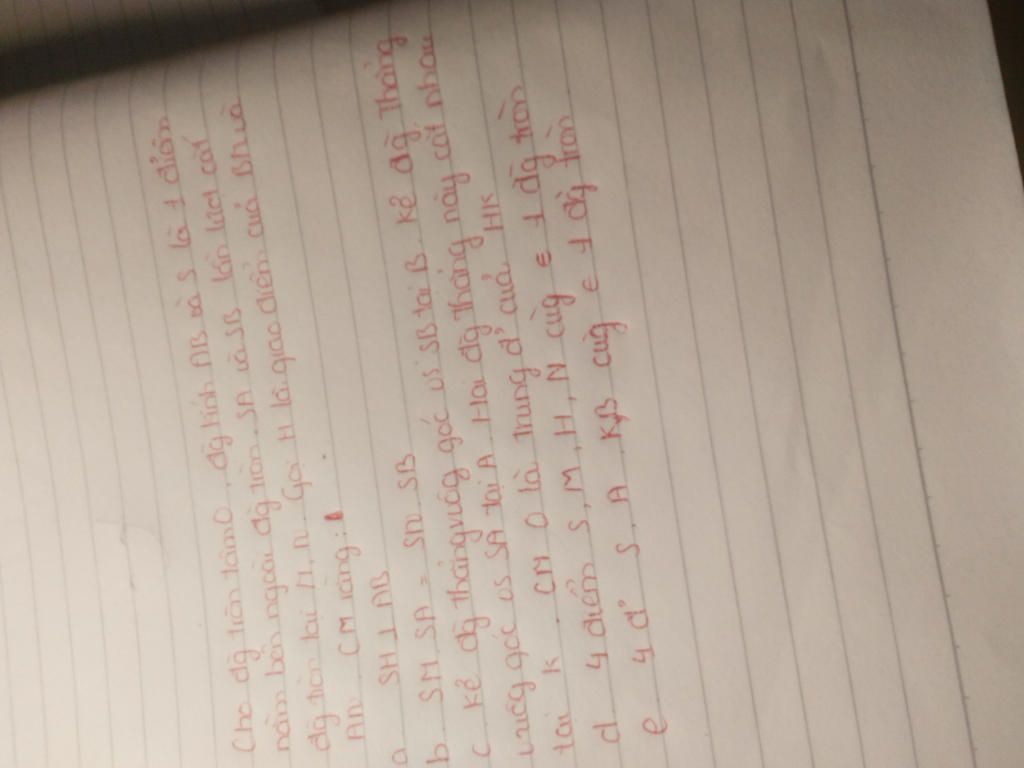 Cho đg tròn tâm O, đg kính AB và S là 1 điểm
nằm bên ngoài đg tròn. SA và SB lần lượt cắt
đg tròn tại M, N. Gọi H là giao điểm của BM và
AN CM rằng:
a SH ⊥ AB
b SM. SA = SN. SB
c Kẻ đg thẳng vuông góc vs SB tại B. Kẻ đg thẳng
vuông góc vs SA tại A. Hai đg thẳng này cắt nhau
tại K. CM O là trung đ' của HK
d 4 điểm S, M, H, N cùg ∈ 1 đg tròn
e 4 đ' S, A, K, B cùg ∈ 1 đg tròn